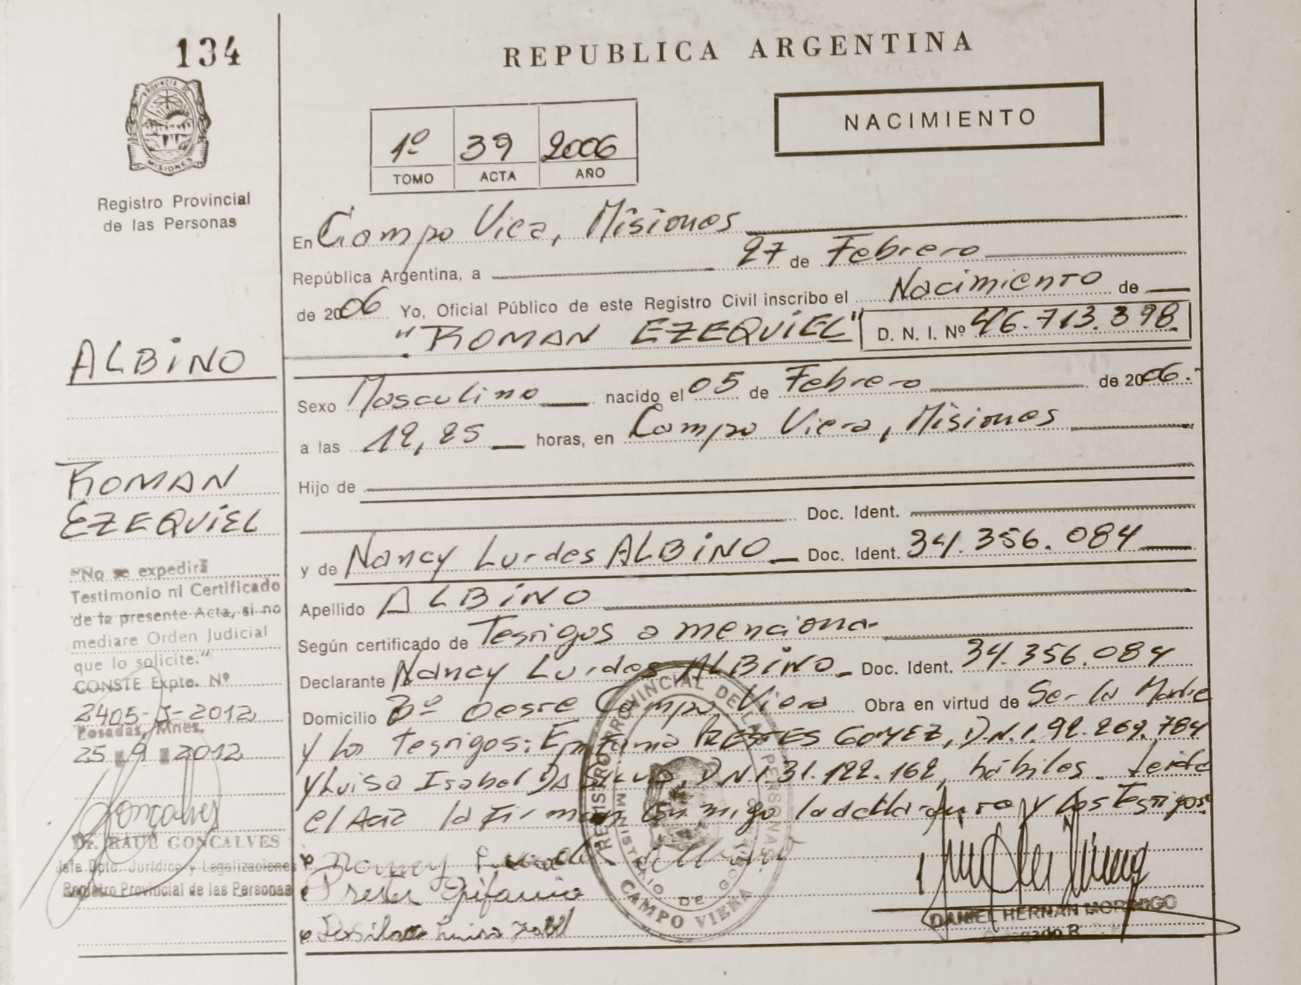 134
REPUBLICA ARGENTINA
PROVINCIA DE
MISIONES
Registro Provincial
de las Personas
1º 39 2006
TOMO ACTA AÑO
NACIMIENTO
En Campo Viera, Misiones
República Argentina, a 27 de Febrero
de 2006 Yo, Oficial Público de este Registro Civil inscribo el Nacimiento de
"ROMAN EZEQUIEL" D. N. I. Nº 46.713.398
Sexo Masculino nacido el 05 de Febrero de 2006.
a las 12,25 horas, en Campo Viera, Misiones
Hijo de
Doc. Ident.
y de Nancy Lurdes ALBINO Doc. Ident. 34.356.084
Apellido ALBINO
Según certificado de Testigos a menciona-
Declarante Nancy Lurdes ALBINO Doc. Ident. 34.356.084
Domicilio Bº Oeste Campo Viera Obra en virtud de Ser la Madre
y los Testigos: GOMEZ, D.N.I. 92.269.784
y Luisa Isabel DA SILVA, DNI 31.122.162, hábiles. Leida
el Acta la Firman conmigo la declarante y los Testigos
ALBINO
ROMAN
EZEQUIEL
"No se expedirá
Testimonio ni Certificado
de la presente Acta, si no
mediare Orden Judicial
que lo solicite."
CONSTE Expte. Nº
2405-J-2012
Posadas, Mnes.
25 9 2012
Goncalves
Dr. RAUL GONCALVES
Jefe Dpto. Jurídico y Legalizaciones
Registro Provincial de las Personas
Nancy
Epifania
Luisa
REGISTRO PROVINCIAL DE LAS PERSONAS
MINISTERIO DE GOBIERNO
CAMPO VIERA
DANIEL HERNAN MORINIGO